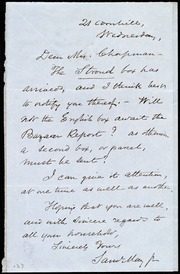 21 Cornhill,
Wednesday,
Dear Mrs. Chapman—
The Stroud box has
arrived, and I think best
to notify you thereof. — Will
not the English box await the
Bazaar Report? as then
a second box, or parcel,
must be sent?
I can give it attention,
at one time as well as another.
Hoping that you are well,
and with sincere regard to
all your household,
Sincerely Yours
Saml. May, Jr.